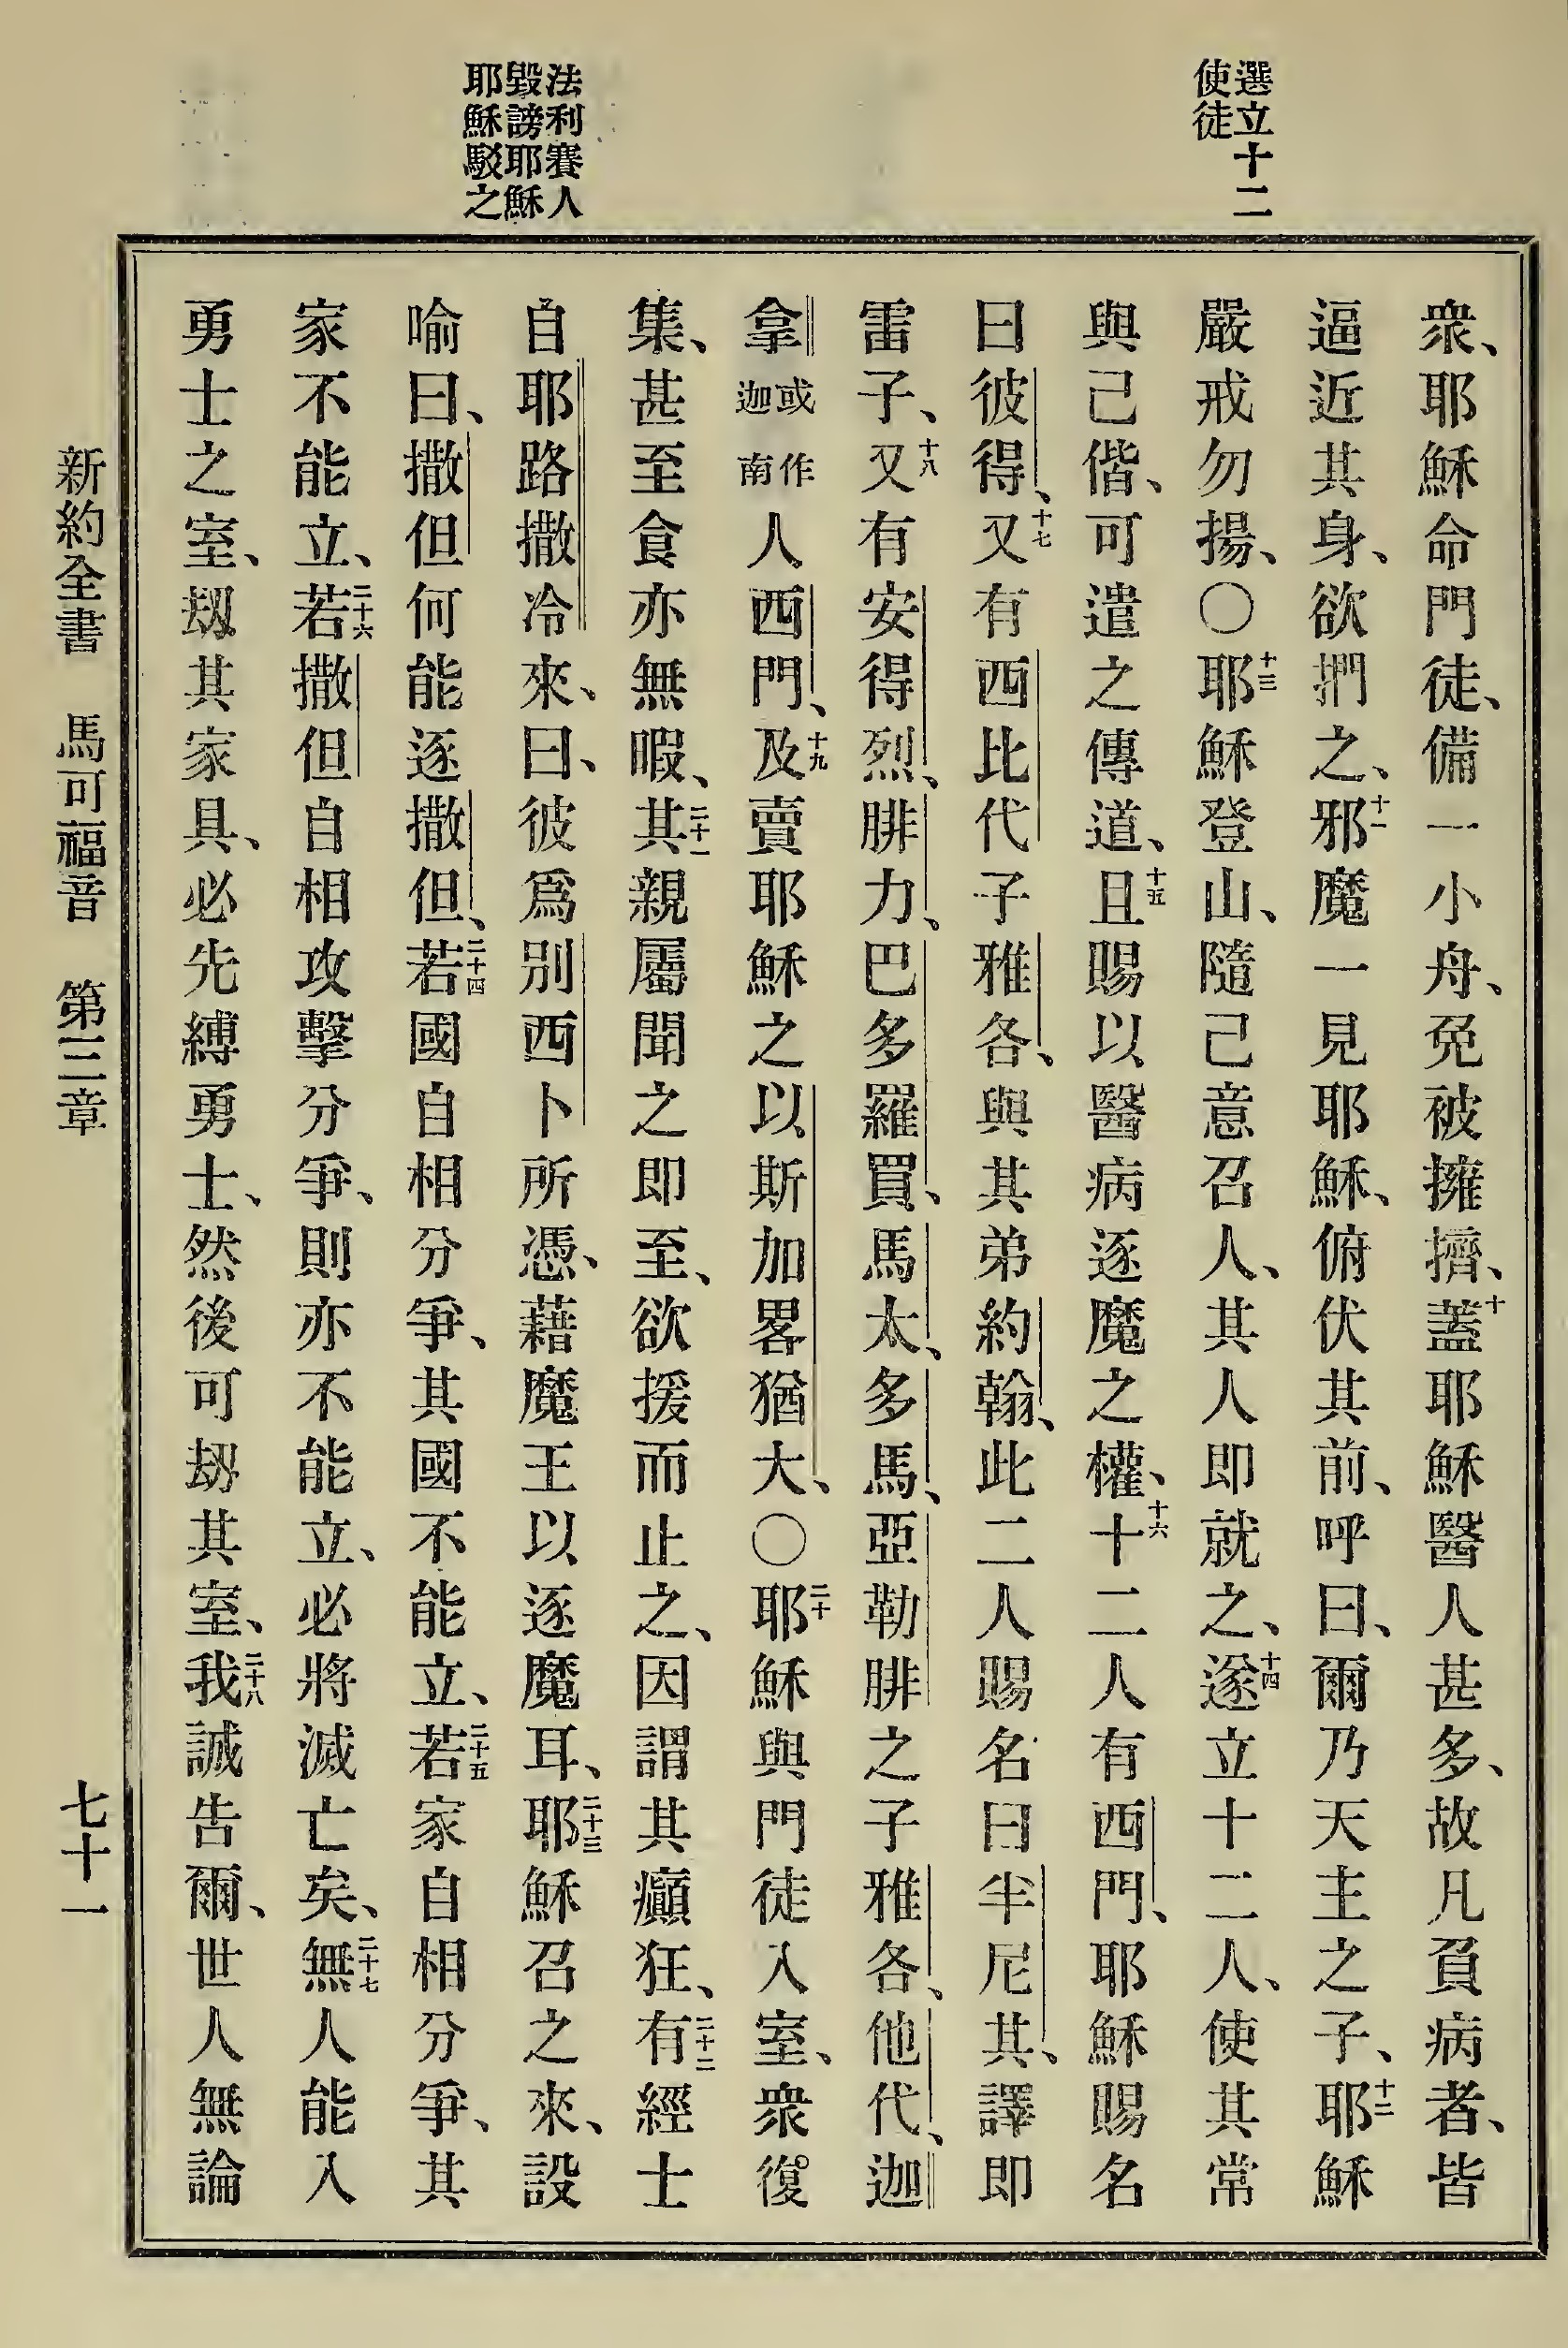 選立十二
使徒
法利賽人
毀謗耶穌
耶穌駁之
衆、耶穌命門徒、備一小舟、免被擁擠、十蓋耶穌醫人甚多、故凡負病者、皆
逼近其身、欲捫之、十一邪魔一見耶穌、俯伏其前、呼曰、爾乃天主之子、十二耶穌
嚴戒勿揚、〇十三耶穌登山、隨己意召人、其人即就之、十四遂立十二人、使其常
與己偕、可遣之傳道、十五且賜以醫病逐魔之權、十六十二人有西門、耶穌賜名
曰彼得、十七又有西比代子雅各、與其弟約翰、此二人賜名曰半尼其、譯即
雷子、十八又有安得烈、腓力、巴多羅買、馬太、多馬、亞勒腓之子雅各、他代、迦
拿或作迦南人西門、十九及賣耶穌之以斯加畧猶大、〇二十耶穌與門徒入室、衆復
集、甚至食亦無暇、二十一其親屬聞之即至、欲援而止之、因謂其癲狂、二十二有經士
自耶路撒冷來、曰、彼爲別西卜所憑、藉魔王以逐魔耳、二十三耶穌召之來、設
喻曰、撒但何能逐撒但、二十四若國自相分爭、其國不能立、二十五若家自相分爭、其
家不能立、二十六若撒但自相攻擊分爭、則亦不能立、必將滅亡矣、二十七無人能入
勇士之室、刼其家具、必先縛勇士、然後可刼其室、二十八我誠告爾、世人無論
新約全書 馬可福音 第三章 七十一